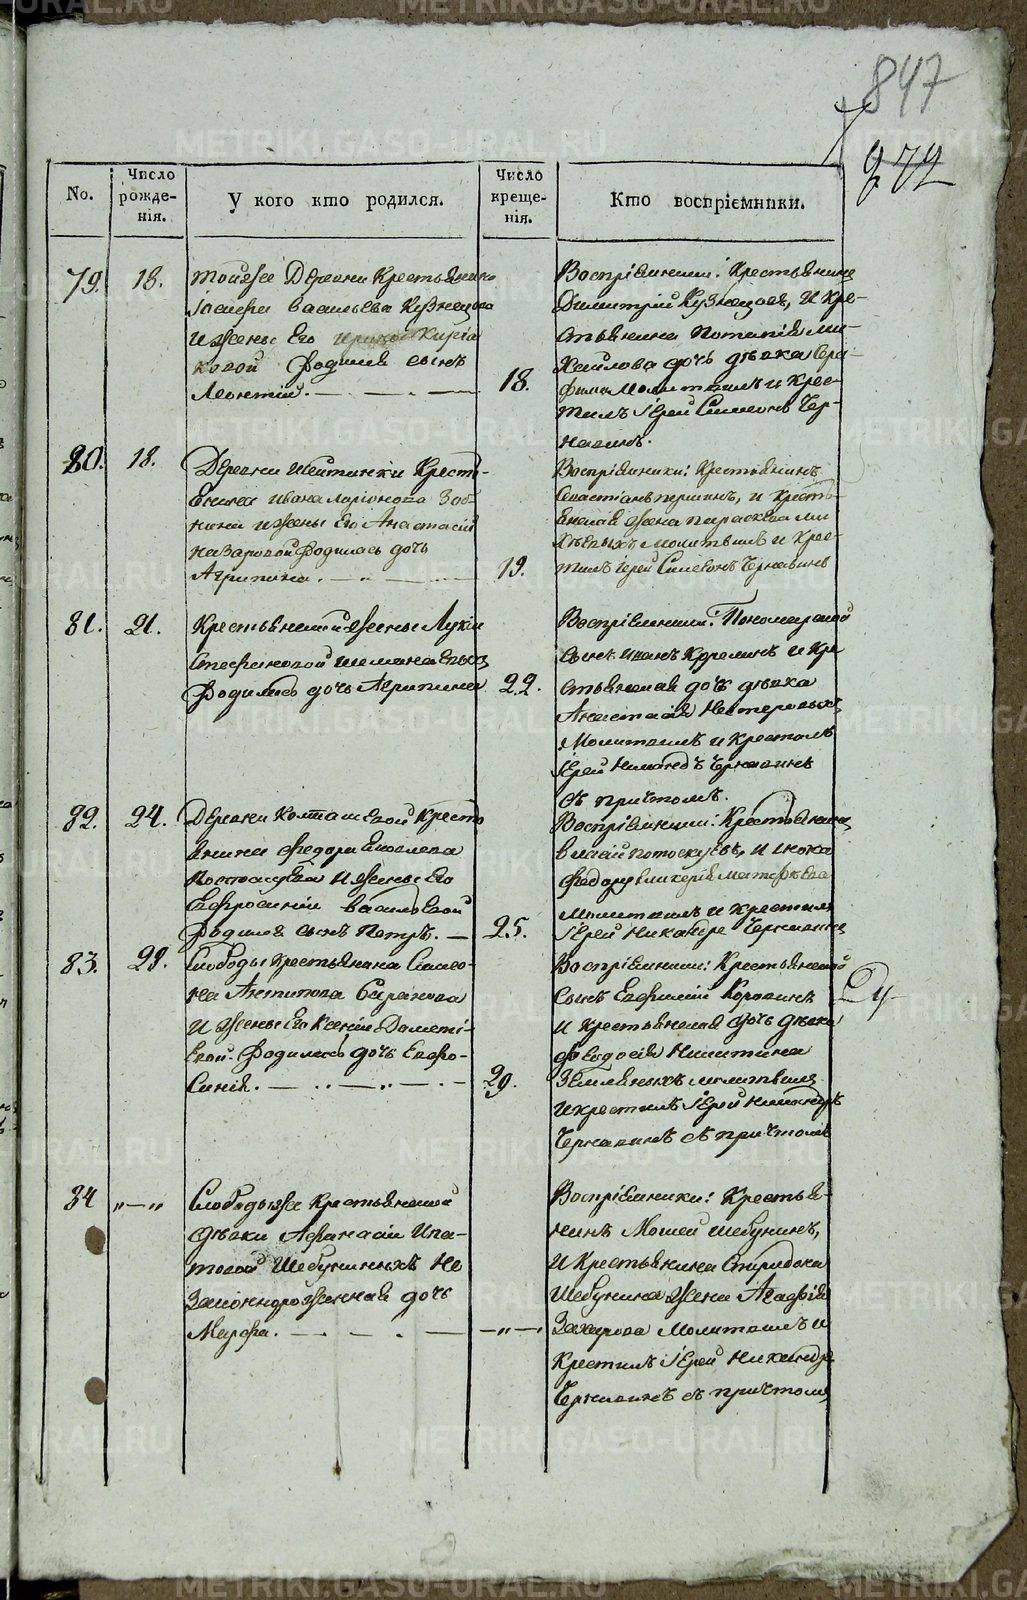 847
272
No.
Число рожде-нія.
У кого кто родился.
Число креще-нія.
Кто воспріемники.
79.
18.
тойже Деревни Крестьянина
Васильева Кузнецова
и жены Его Кирія
ковой родился сынъ
Леонтій.
18.
Воспріемники: Крестьянинъ
Димитрій Кузнецовъ, и Кре-
стьянина Ми-
хайлова дочь дѣвка Сера-
фима Молитвилъ и Крес-
тилъ Іерей Симеонъ Чер-
навинъ.
80.
18.
Деревни Крестьянина Ивана Ларіонова
и жены Его Анастасіи
Назаровой родилась дочь
Агрипина.
19.
Воспріемники: Крестьянинъ
Севастіанъ Першинъ, и Кресть-
янская жена Параскева Ми
Молитвилъ и Крес-
тилъ Іерей Симеонъ Чернавинъ
81.
21.
Крестьянской жены Лукіи
Стефановой
родилась дочь Агрипина
22.
Воспріемники: Пономарской
сынъ Иванъ и Кре
стьянская дочь дѣвка
Анастасія Нестеровыхъ
Молитвилъ и Крестилъ
Іерей Никандръ Чернавинъ
съ причтомъ.
82.
24.
Деревни Колташевой Кресть
янина Федора Яковлева
Потоскуева и жены Его
Евфросиніи Васильевой
родился сынъ Петръ.
25.
Воспріемники: Крестьянинъ
Власій Потоскуевъ, и инока
Федора Гликерія Матфѣева
Молитвилъ и Крестилъ
Іерей Никандръ Чернавинъ
83.
29.
Слободы Крестьянина Симео-
на Антипова Баранова
и жены Его Ксеніи Дометі-
евой родилась дочь Евфро-
синія.
29.
Воспріемники: Крестьянской
сынъ Евфимій Коровинъ
и Крестьянская дочь дѣвка
Феодосія Никитина
Земляныхъ молитвилъ
и крестилъ Іерей Никандръ
Чернавинъ съ причтомъ
84
„—„
Слободыже Крестьянской
дѣвки Афанасіи Ипа-
товой Шебуниныхъ не
законнорожденная дочь
Марфа.
—„—
Воспріемники: Крестья-
нинъ Мокей Шебунинъ,
и Крестьянина Спиридона
Шебунина жена Агафія
Захарова Молитвилъ и
Крестилъ Іерей Никандръ
Чернавинъ съ причтомъ
METRIKI.GASO-URAL.RU